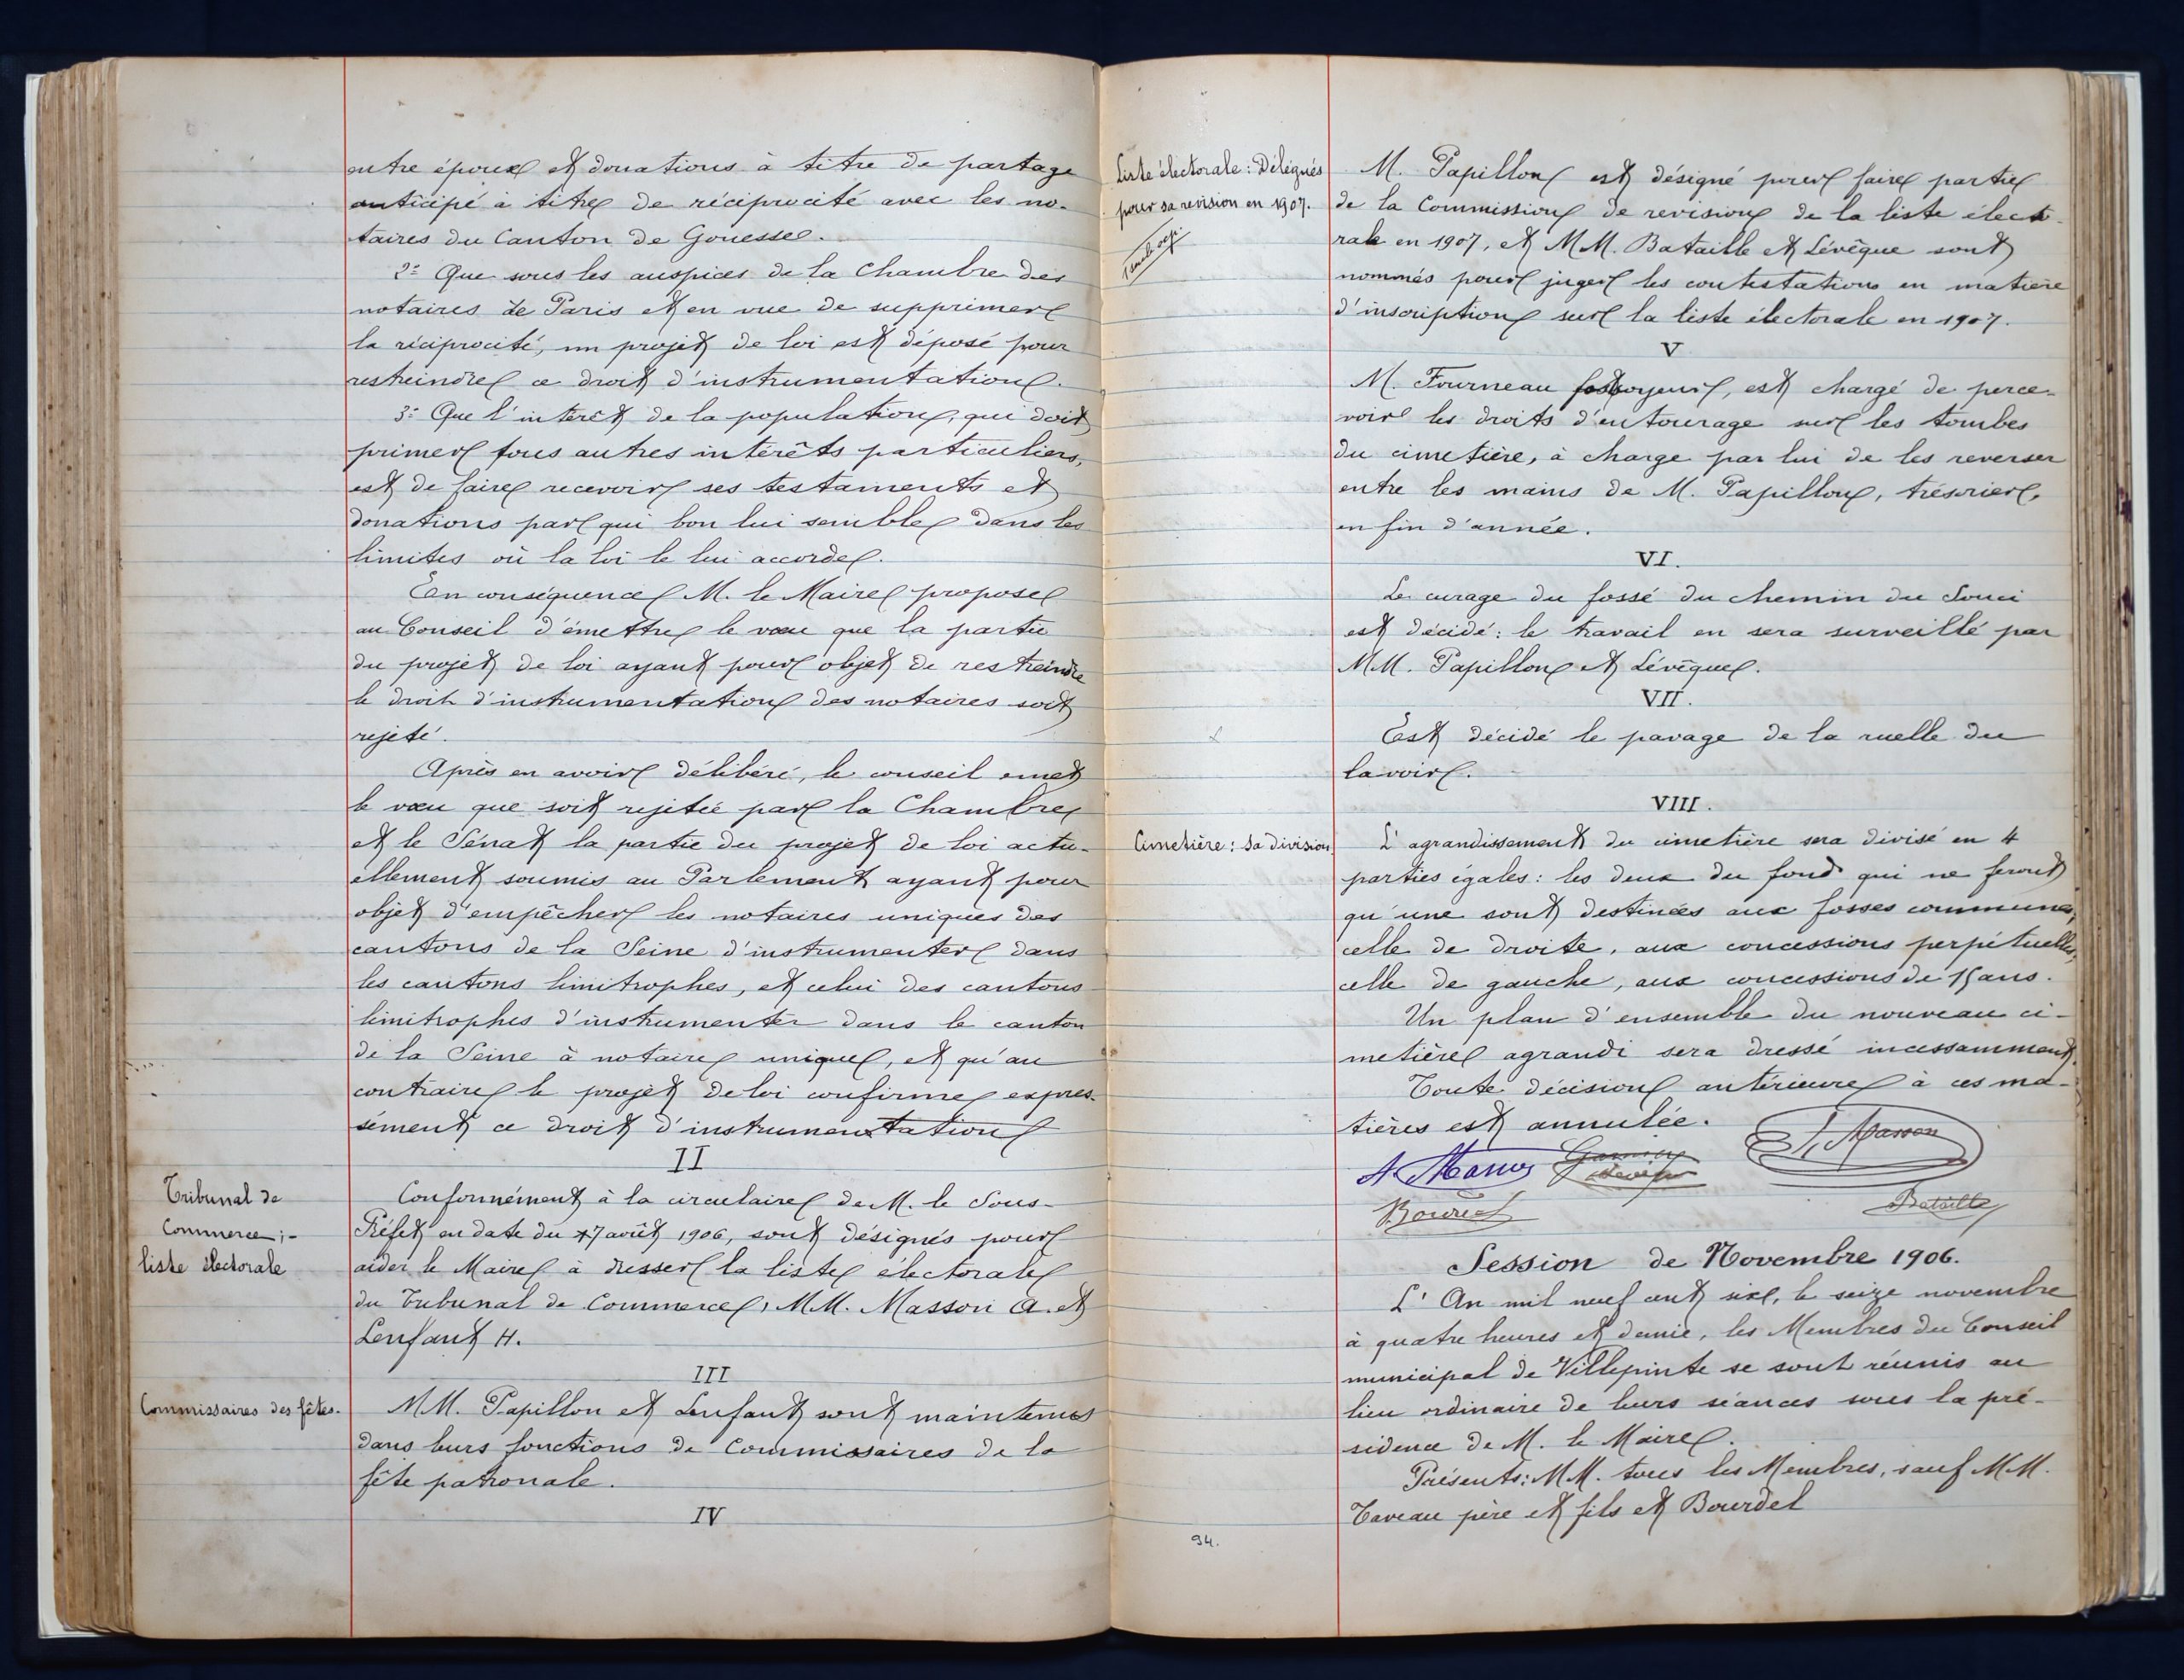 entre époux et donations à titre de partage
anticipé à titre de réciprocité avec les no-
taires du Canton de Gonesse.
2° Que sous les auspices de la Chambre des
notaires de Paris et en vue de supprimer
la réciprocité, un projet de loi est déposé pour
restreindre ce droit d'instrumentation.
3° Que l'intérêt de la population, qui doit
primer tous autres intérêts particuliers,
est de faire recevoir ses testaments et
donations par qui bon lui semble dans les
limites où la loi le lui accorde.
En conséquence M. le Maire propose
au Conseil d'émettre le vœu que la partie
du projet de loi ayant pour objet de restreindre
le droit d'instrumentation des notaires soit
rejeté.
Après en avoir délibéré, le conseil emet
le vœu que soit rejetée par la Chambre
et le Sénat la partie du projet de loi actu-
ellement soumis au Parlement ayant pour
objet d'empêcher les notaires uniques des
cantons de la Seine d'instrumenter dans
les cantons limitrophes, et celui des cantons
limitrophes d'instrumenter dans le canton
de la Seine à notaire unique, et qu'au
contraire le projet de loi confirme expres-
sément ce droit d'instrumentation
II
Tribunal de
Commerce; -
liste électorale
Conformément à la circulaire de M. le Sous-
Préfet en date du 17 août 1906, sont désignés pour
aider le Maire à dresser la liste électorale
du Tribunal de Commerce, MM. Masson A. et
Lenfant H.
III
Commissaires des fêtes.
MM. Papillon et Lenfant sont maintenus
dans leurs fonctions de Commissaires de la
fête patronale.
IV
Liste électorale: Délégués
pour sa revision en 1907.
M. Papillon est désigné pour faire partie
de la Commission de revision de la liste électo-
rale en 1907, et MM. Bataille et Lévêque sont
nommés pour juger les contestations en matière
d'inscription sur la liste électorale en 1907.
V
M. Fourneau fossoyeur, est chargé de perce-
voir les droits d'entourage sur les tombes
du cimetière, à charge par lui de les reverser
entre les mains de M. Papillon, trésorier,
en fin d'année.
VI.
Le curage du fossé du chemin du Souci
est décidé: le travail en sera surveillé par
MM. Papillon et Lévêque.
VII.
Est décidé le pavage de la ruelle du
lavoir.
VIII.
Cimetière: Sa division
L'agrandissement du cimetière sera divisé en 4
parties égales: les deux du fond qui ne feront
qu'une sont destinées aux fosses communes,
celle de droite, aux concessions perpétuelles,
celle de gauche, aux concessions de 15 ans.
Un plan d'ensemble du nouveau ci-
metière agrandi sera dressé incessamment.
Toute décision antérieure à ces ma-
tières est annulée.
Masson
Bataille
Session de Novembre 1906.
L'An mil neuf cent six, le seize novembre
à quatre heures et demie, les Membres du Conseil
municipal de Villepinte se sont réunis au
lieu ordinaire de leurs séances sous la pré-
sidence de M. le Maire.
Présents: MM. tous les Membres, sauf MM.
Taveau père et fils et Bourdel
94.